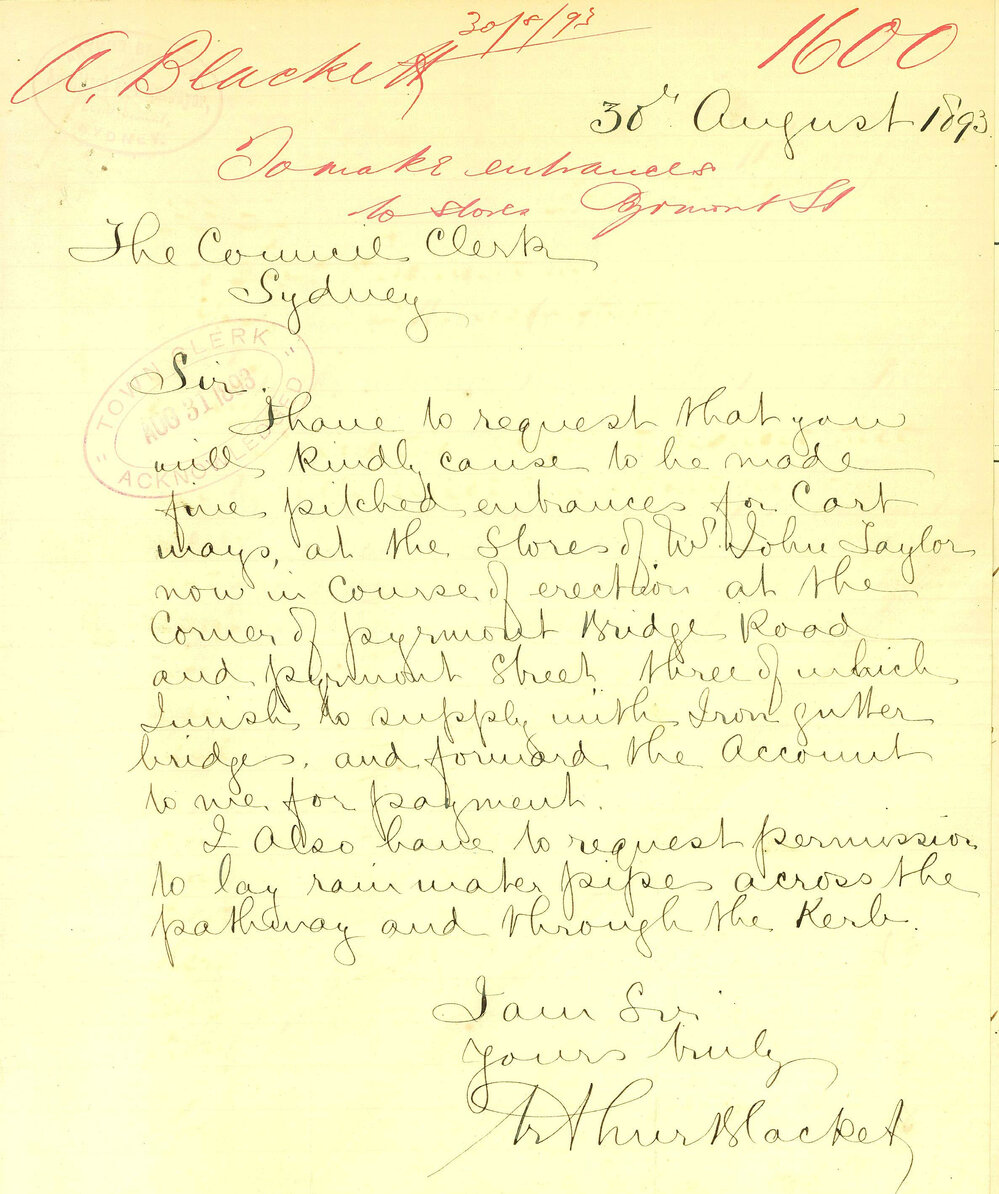 30/8/93
A. Blackett
1600
SYDNEY.
30th August 1893
To make entrances
to stores Pyrmont St
The Council Clerk
Sydney
"TOWN CLERK"
AUG 31 1893
ACKNOWLEDGED
Sir.
I have to request that you
will kindly cause to be made
five pitched entrances for Cart
ways, at the Stores of Mr. John Taylor
now in Course of erection at the
Corner of pyrmont Bridge Road
and pyrmont Street three of which
I wish to supply with Iron gutter
bridges. and forward the Account
to me for payment.
I Also have to request permission
to lay rain water pipes across the
pathway and through the Kerb.
I am Sir
yours truly
Arthur Blacket